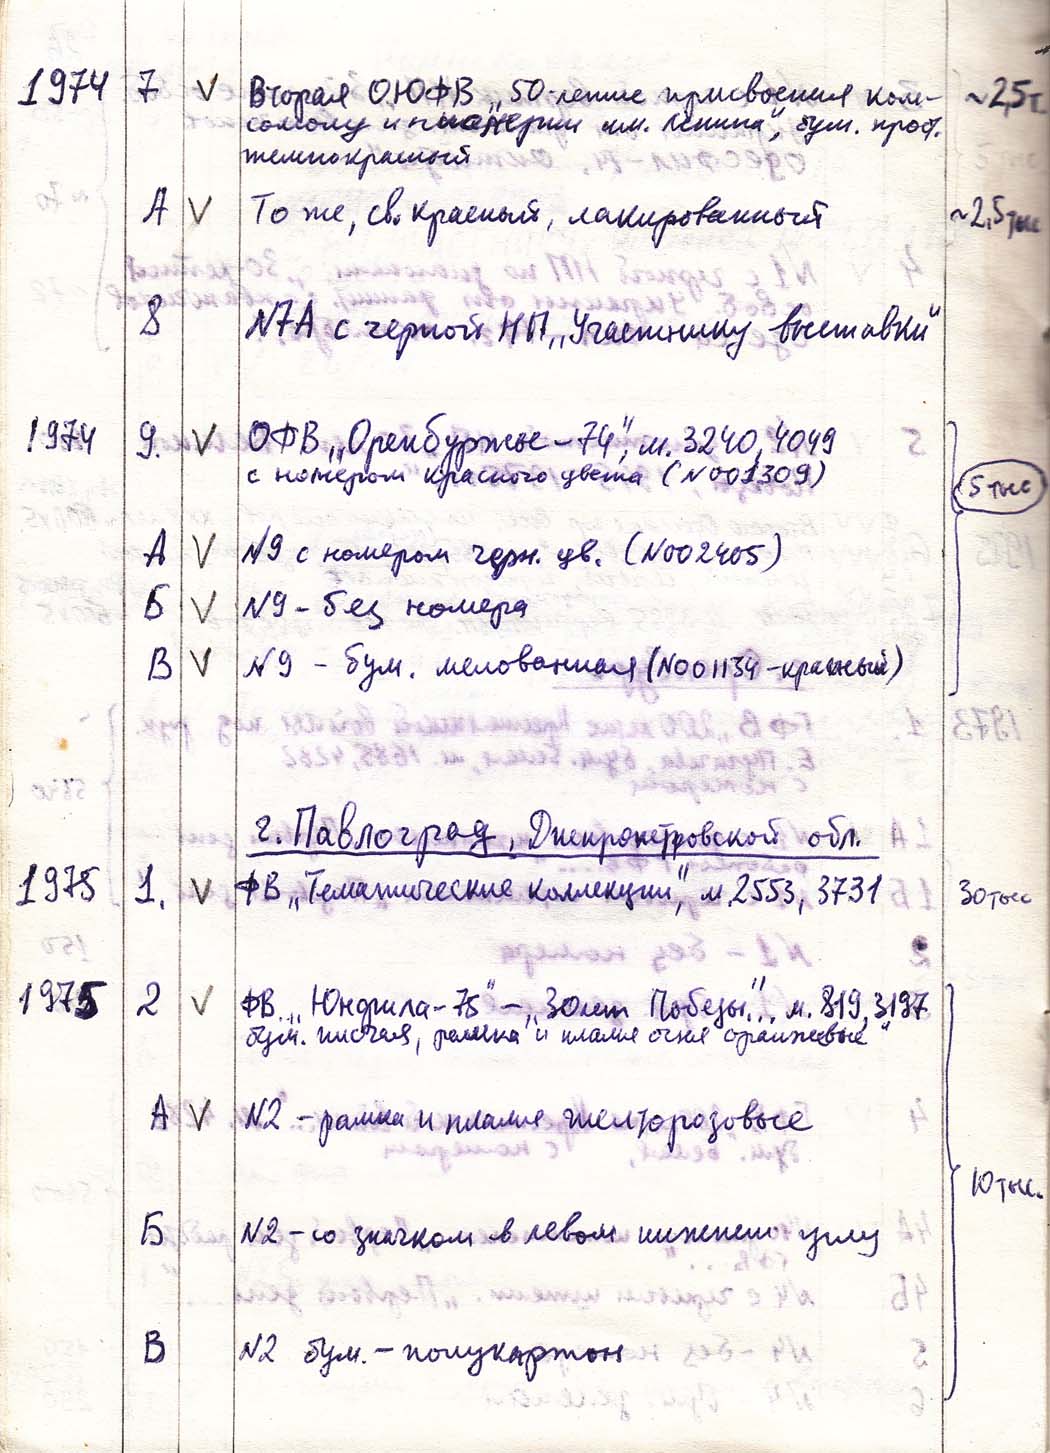 1974 7 V Вторая ОЮФВ „50-летие присвоения ком-
~2,5т.
сомолу и пионерии им. Ленина", бум. проф.
темнокрасный
А V То же, св. красный, лакированный ~2,5 тыс
8 N7А с черной НП „Участнику выставки"
1974 9. V ОФВ „Оренбуржье – 74", м. 3240, 4049
с номером красного цвета (N001309)
5 тыс
А V N9 с номером черн. цв. (N002405)
Б V N9 – без номера
В V N9 – бум. мелованная (N001134 – красный)
г. Павлоград, Днепропетровской обл.
1975 1. V ФВ „Тематические коллекции", м. 2553, 3731 30 тыс
1975 2 V ФВ „Юнфила-75" – „30 лет Победы", м. 819, 3197
бум. писчая, рамка и пламя огня оранжевые
А V N2 – рамка и пламя желторозовые
10 тыс.
Б N2 – со значком в левом нижнем углу
В N2 бум. – полукартон